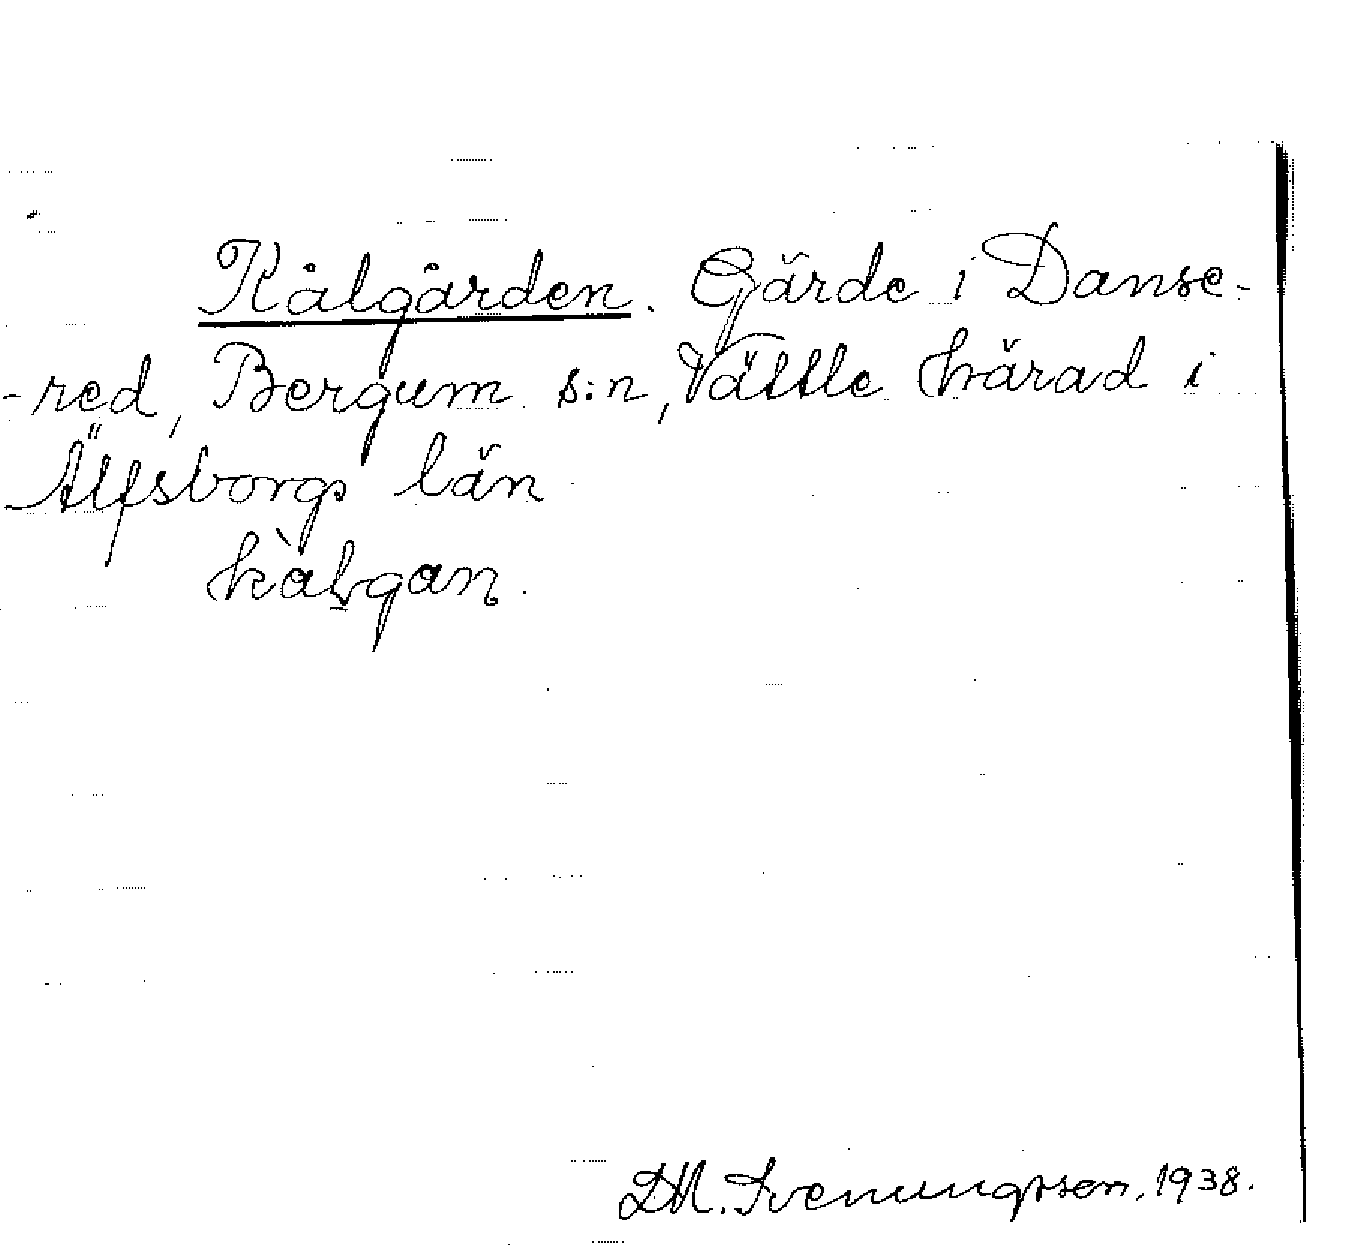 Kålgården. Gärde i Danse-
-red, Bergum s:n, Vättle härad i
Älfsborgs län
kàlgan.
D.M. Svenungsson, 1938.